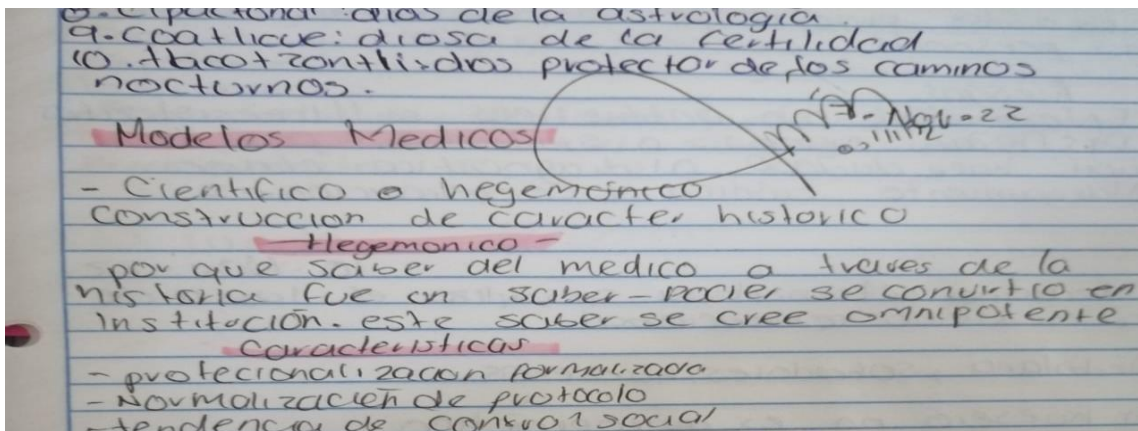 8. Cipactonal: dias de la astrologia
9. coatlicue: diosa de la fertilidad
10. tlacotzontli: dios protector de los caminos
nocturnos.
Modelos Medicos
- Cientifico o hegemonico
construccion de caracter historico
- Hegemonico -
por que saber del medico a traves de la
historia fue un saber-poder se convirtio en
institución. este saber se cree omnipotente
Caracteristicas
- profecionalizacion formalizada
- Normalización de protocolo
- tendencia de control social